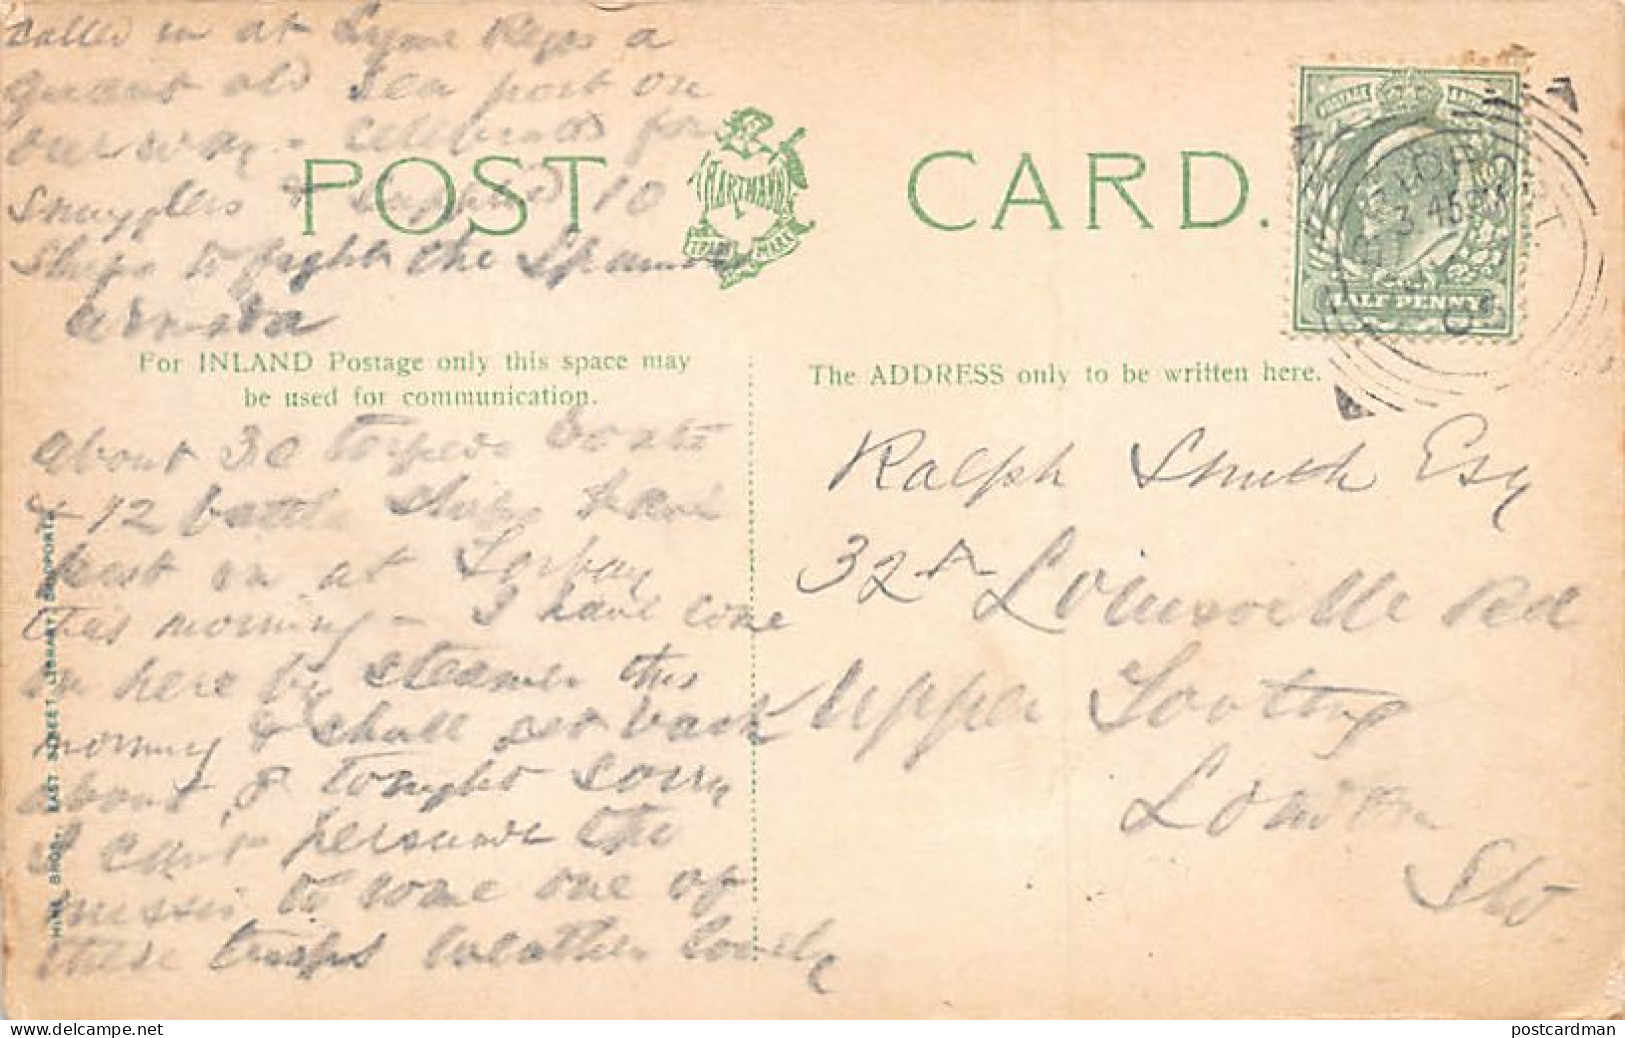 called in at Lyme Regis a
quaint old sea port on
our way - celebrated for
smugglers & supplied 10
ships to fight the Spanish
armada
POST CARD.
HARTMANN
TRADE MARK
POSTAGE
HALF PENNY
BRIDPORT
3 45 PM
For INLAND Postage only this space may
be used for communication.
The ADDRESS only to be written here.
about 30 torpedo boats
& 12 battle ships have
put in at Torbay
this morning - I have come
on here by steamer this
morning & shall get back
about 8 tonight sorry
I can't persuade the
missis to come one of
these trips Weather lovely
Ralph Smith Esq
32A Louisville Rd
Upper Tooting
London
SW
HINE BROS. EAST STREET LIBRARY, BRIDPORT.
postcardman